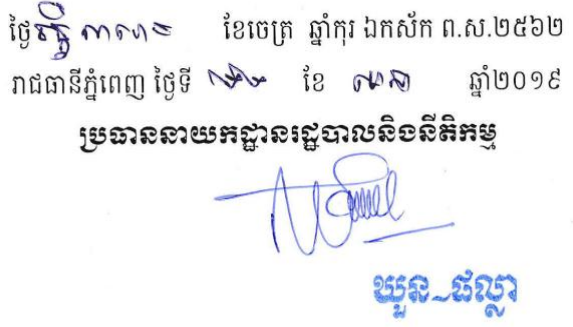 ថ្ងៃ ខែចេត្រ ឆ្នាំកុរ ឯកស័ក ព.ស.២៥៦២
រាជធានីភ្នំពេញ ថ្ងៃទី ខែ ឆ្នាំ២០១៩
ប្រធាននាយកដ្ឋានរដ្ឋបាលនិងនីតិកម្ម
ឃួន-ផល្លា